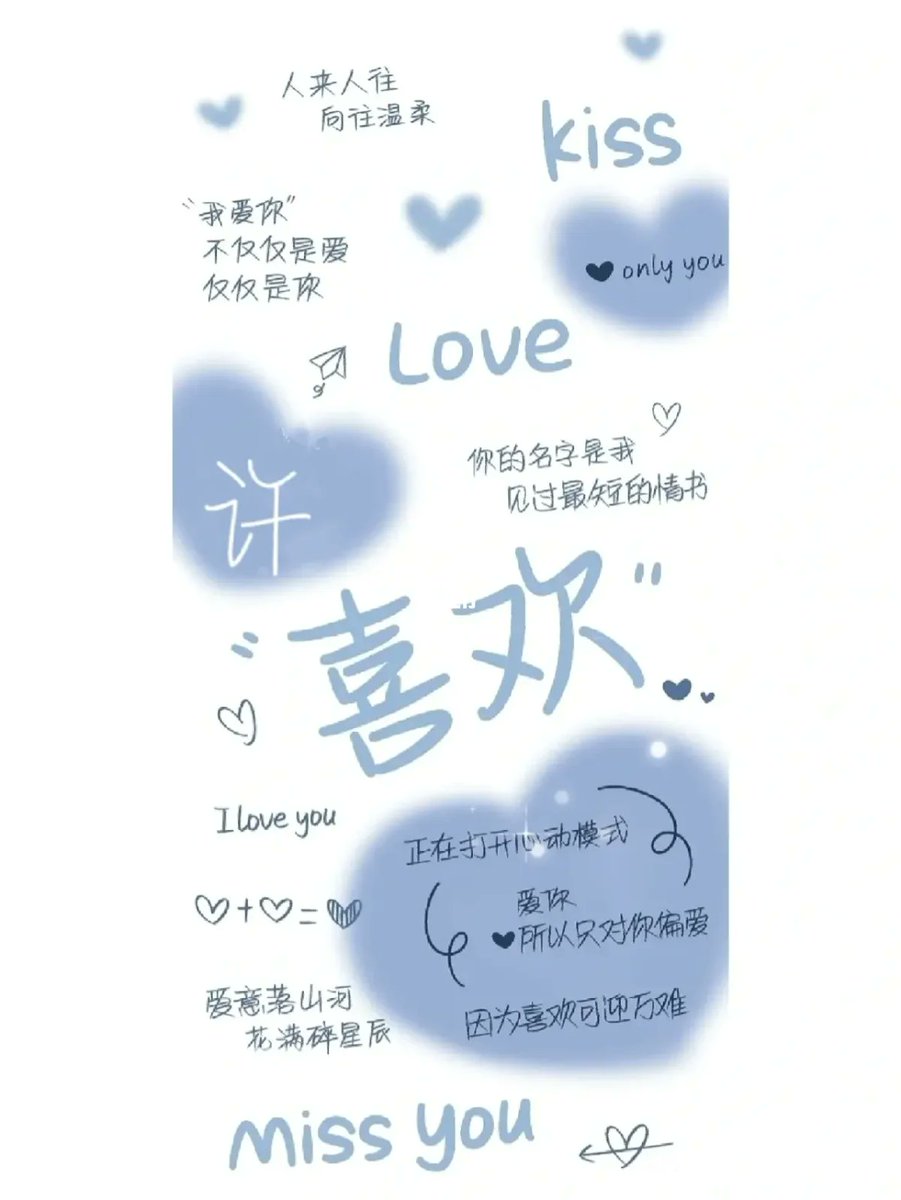 人来人往
向往温柔
kiss
"我爱你"
不仅仅是爱
仅仅是你
only you
Love
你的名字是我
见过最短的情书
许
"喜欢"
I love you
正在打开心动模式
爱你
所以只对你偏爱
爱意落山河
花满碎星辰
因为喜欢可迎万难
Miss you